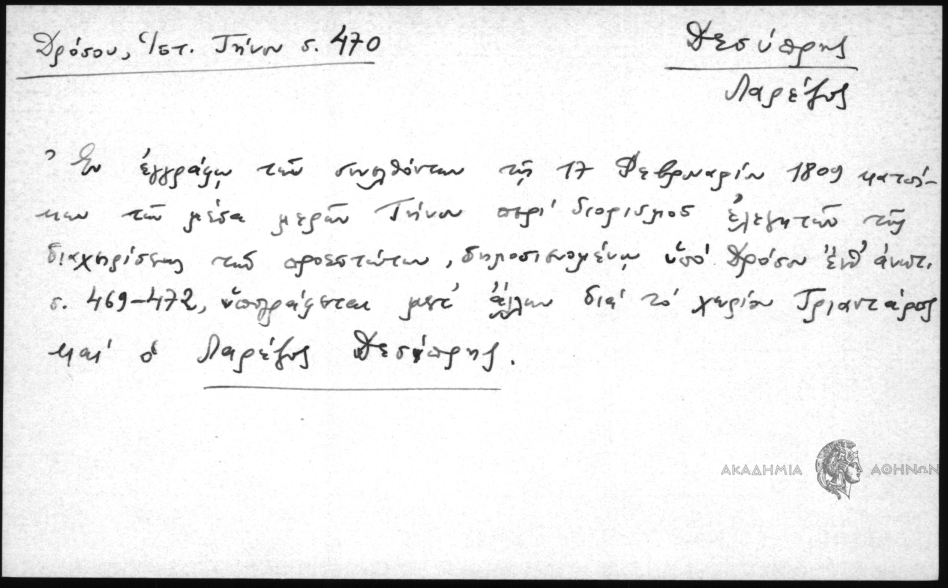 Δρόσου, Ἱστ. Τήνου σ. 470
Δεσύπρης
Λαρέζος
Ἐν ἐγγράφῳ τῶν συνελθόντων τῇ 17 Φεβρουαρίου 1809 κατοί-
κων τῶν μέσα μερῶν Τήνου περί διορισμοῦ ἐλεγκτῶν τῆς
διαχειρίσεως τῶν προεστώτων, δημοσιευομένῳ ὑπό Δρόσου ἐνθ' ἀνωτ.
σ. 469-472, ὑπογράφεται μετ' ἄλλων διά τό χωρίον Τριαντάρος
καί ὁ Λαρέζος Δεσύπρης.
ΑΚΑΔΗΜΙΑ ΑΘΗΝΩΝ